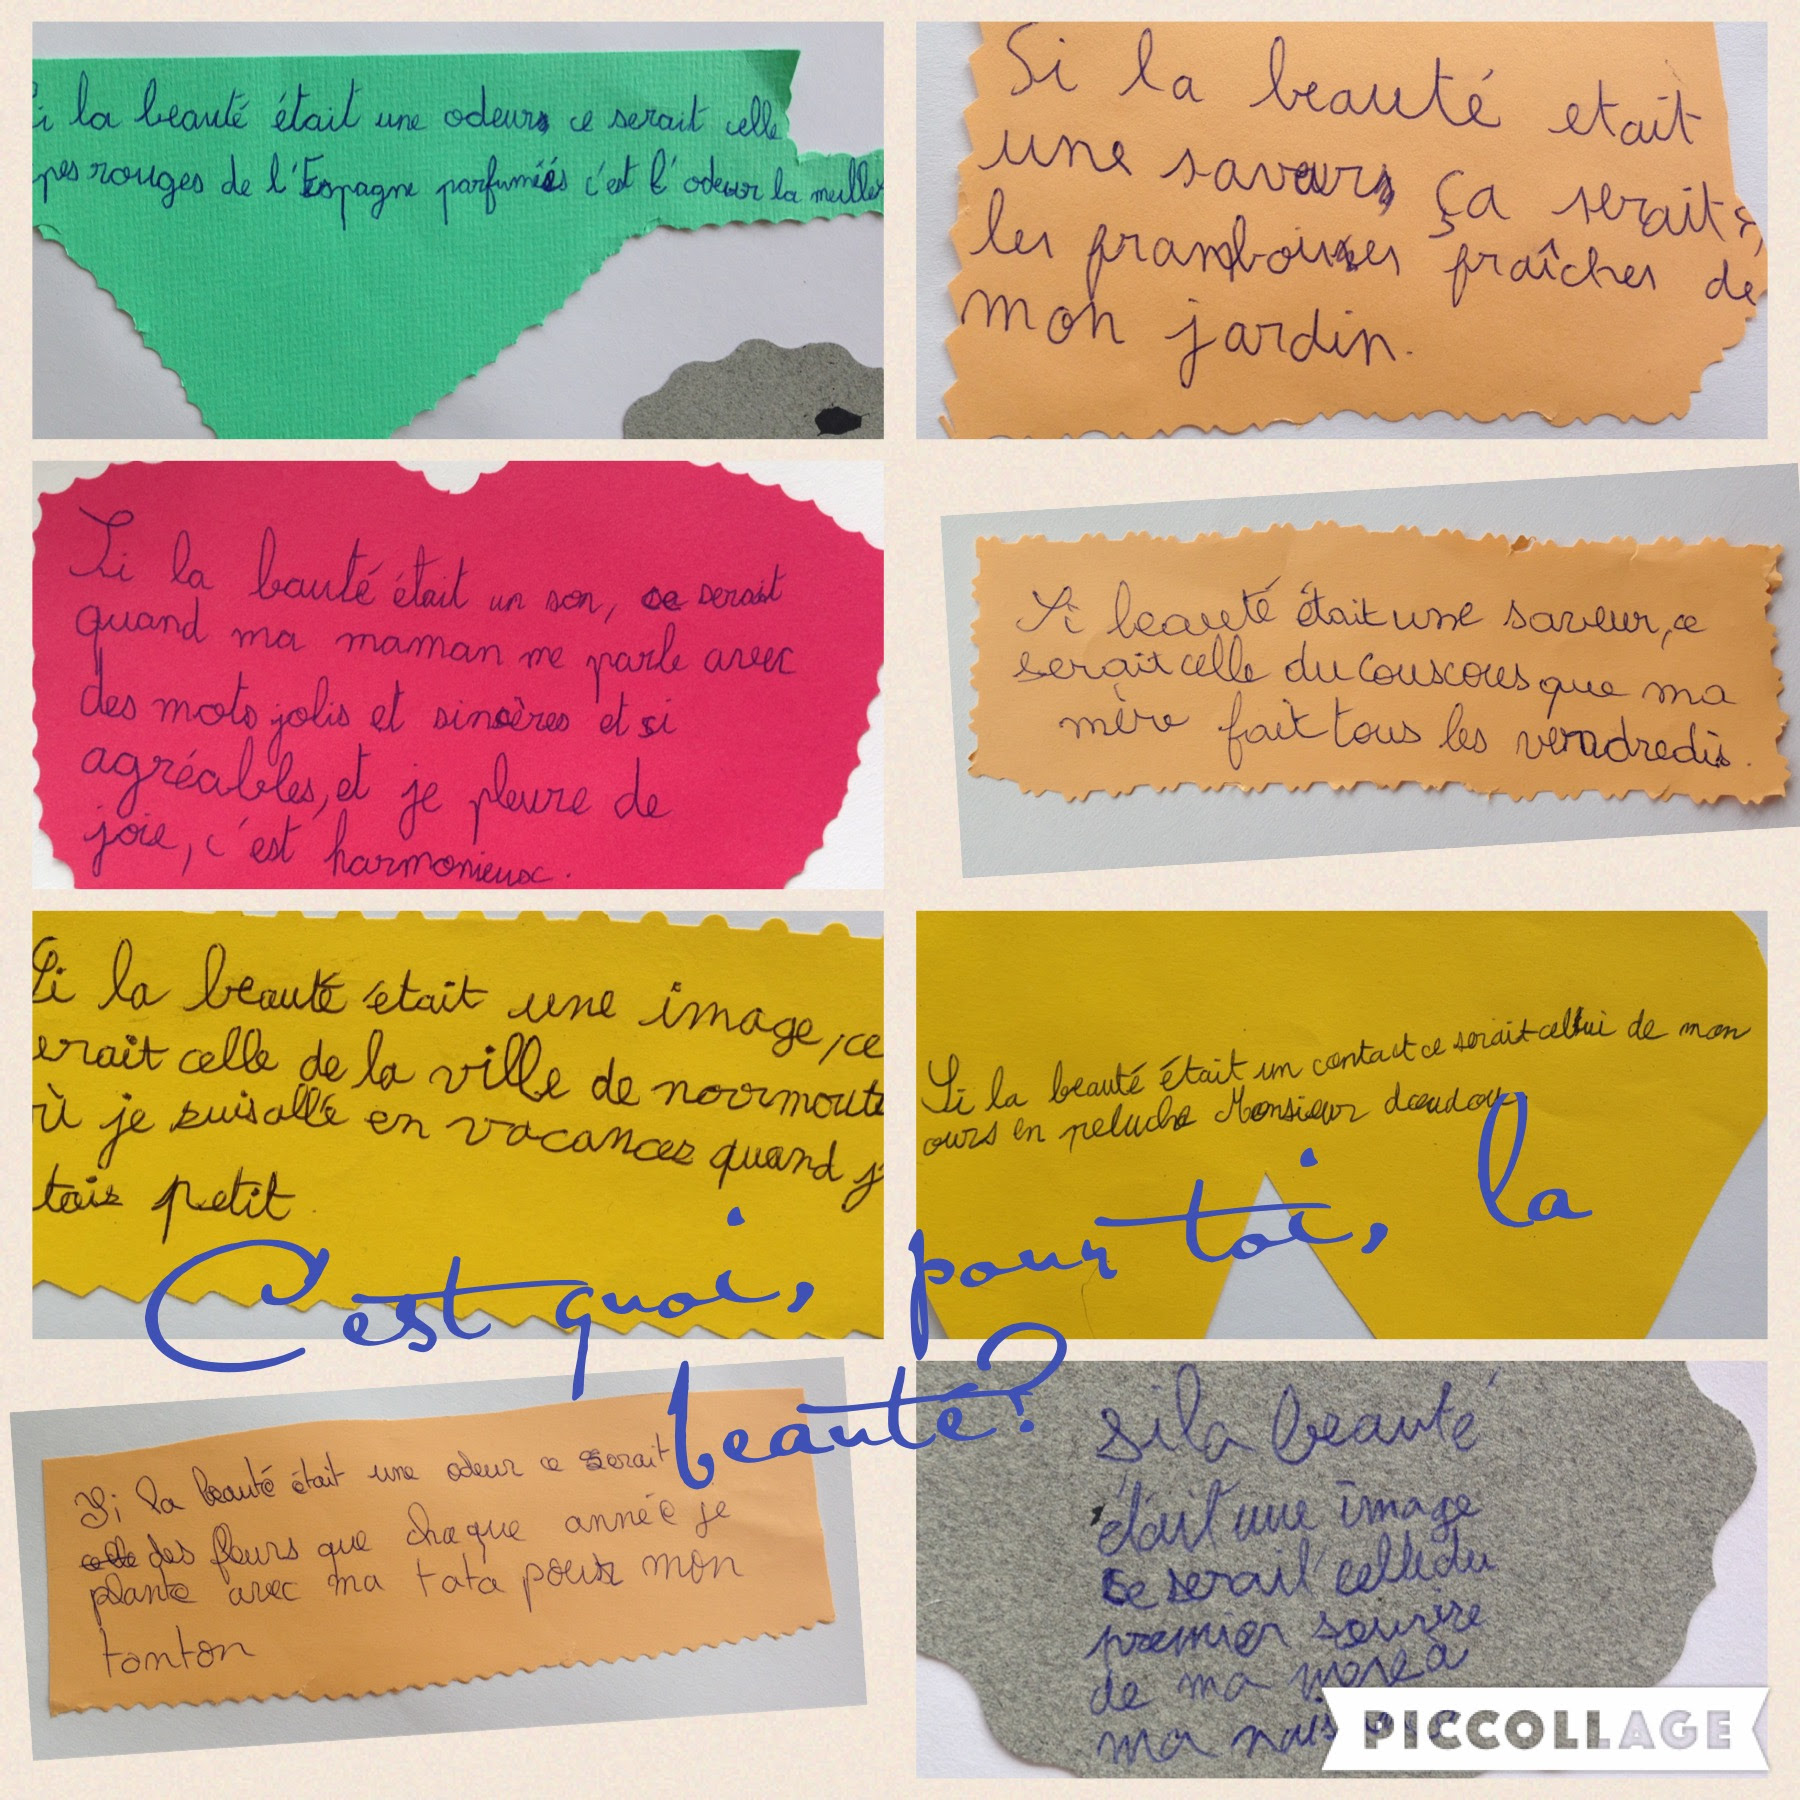 i la beauté était une odeur ce serait celle
pes rouges de l'Espagne parfumées c'est l'odeur la meille
Si la beauté etait
une saveur, ça serait,
les framboises fraîches de
mon jardin.
Si la bauté était un son, ce serait
quand ma maman me parle avec
des mots jolis et sincères et si
agréables, et je pleure de
joie, c'est harmonieux.
Si beauté était une saveur, ce
serait celle du couscous que ma
mère fait tous les vendredis.
Si la beauté était une image, ce
erait celle de la ville de noirmoute
ù je suis allé en vacances quand j'
tais petit.
Si la beauté était un contact ce serait celui de mon
ours en peluche Monsieur doudou
C'est quoi, pour toi, la
beauté?
Si la beauté était une odeur ce serait
des fleurs que chaque année je
plante avec ma tata pour mon
tonton
Si la beauté
était une image
Ce serait celle du
premier sourire
de ma à
ma nais
PICCOLLAGE